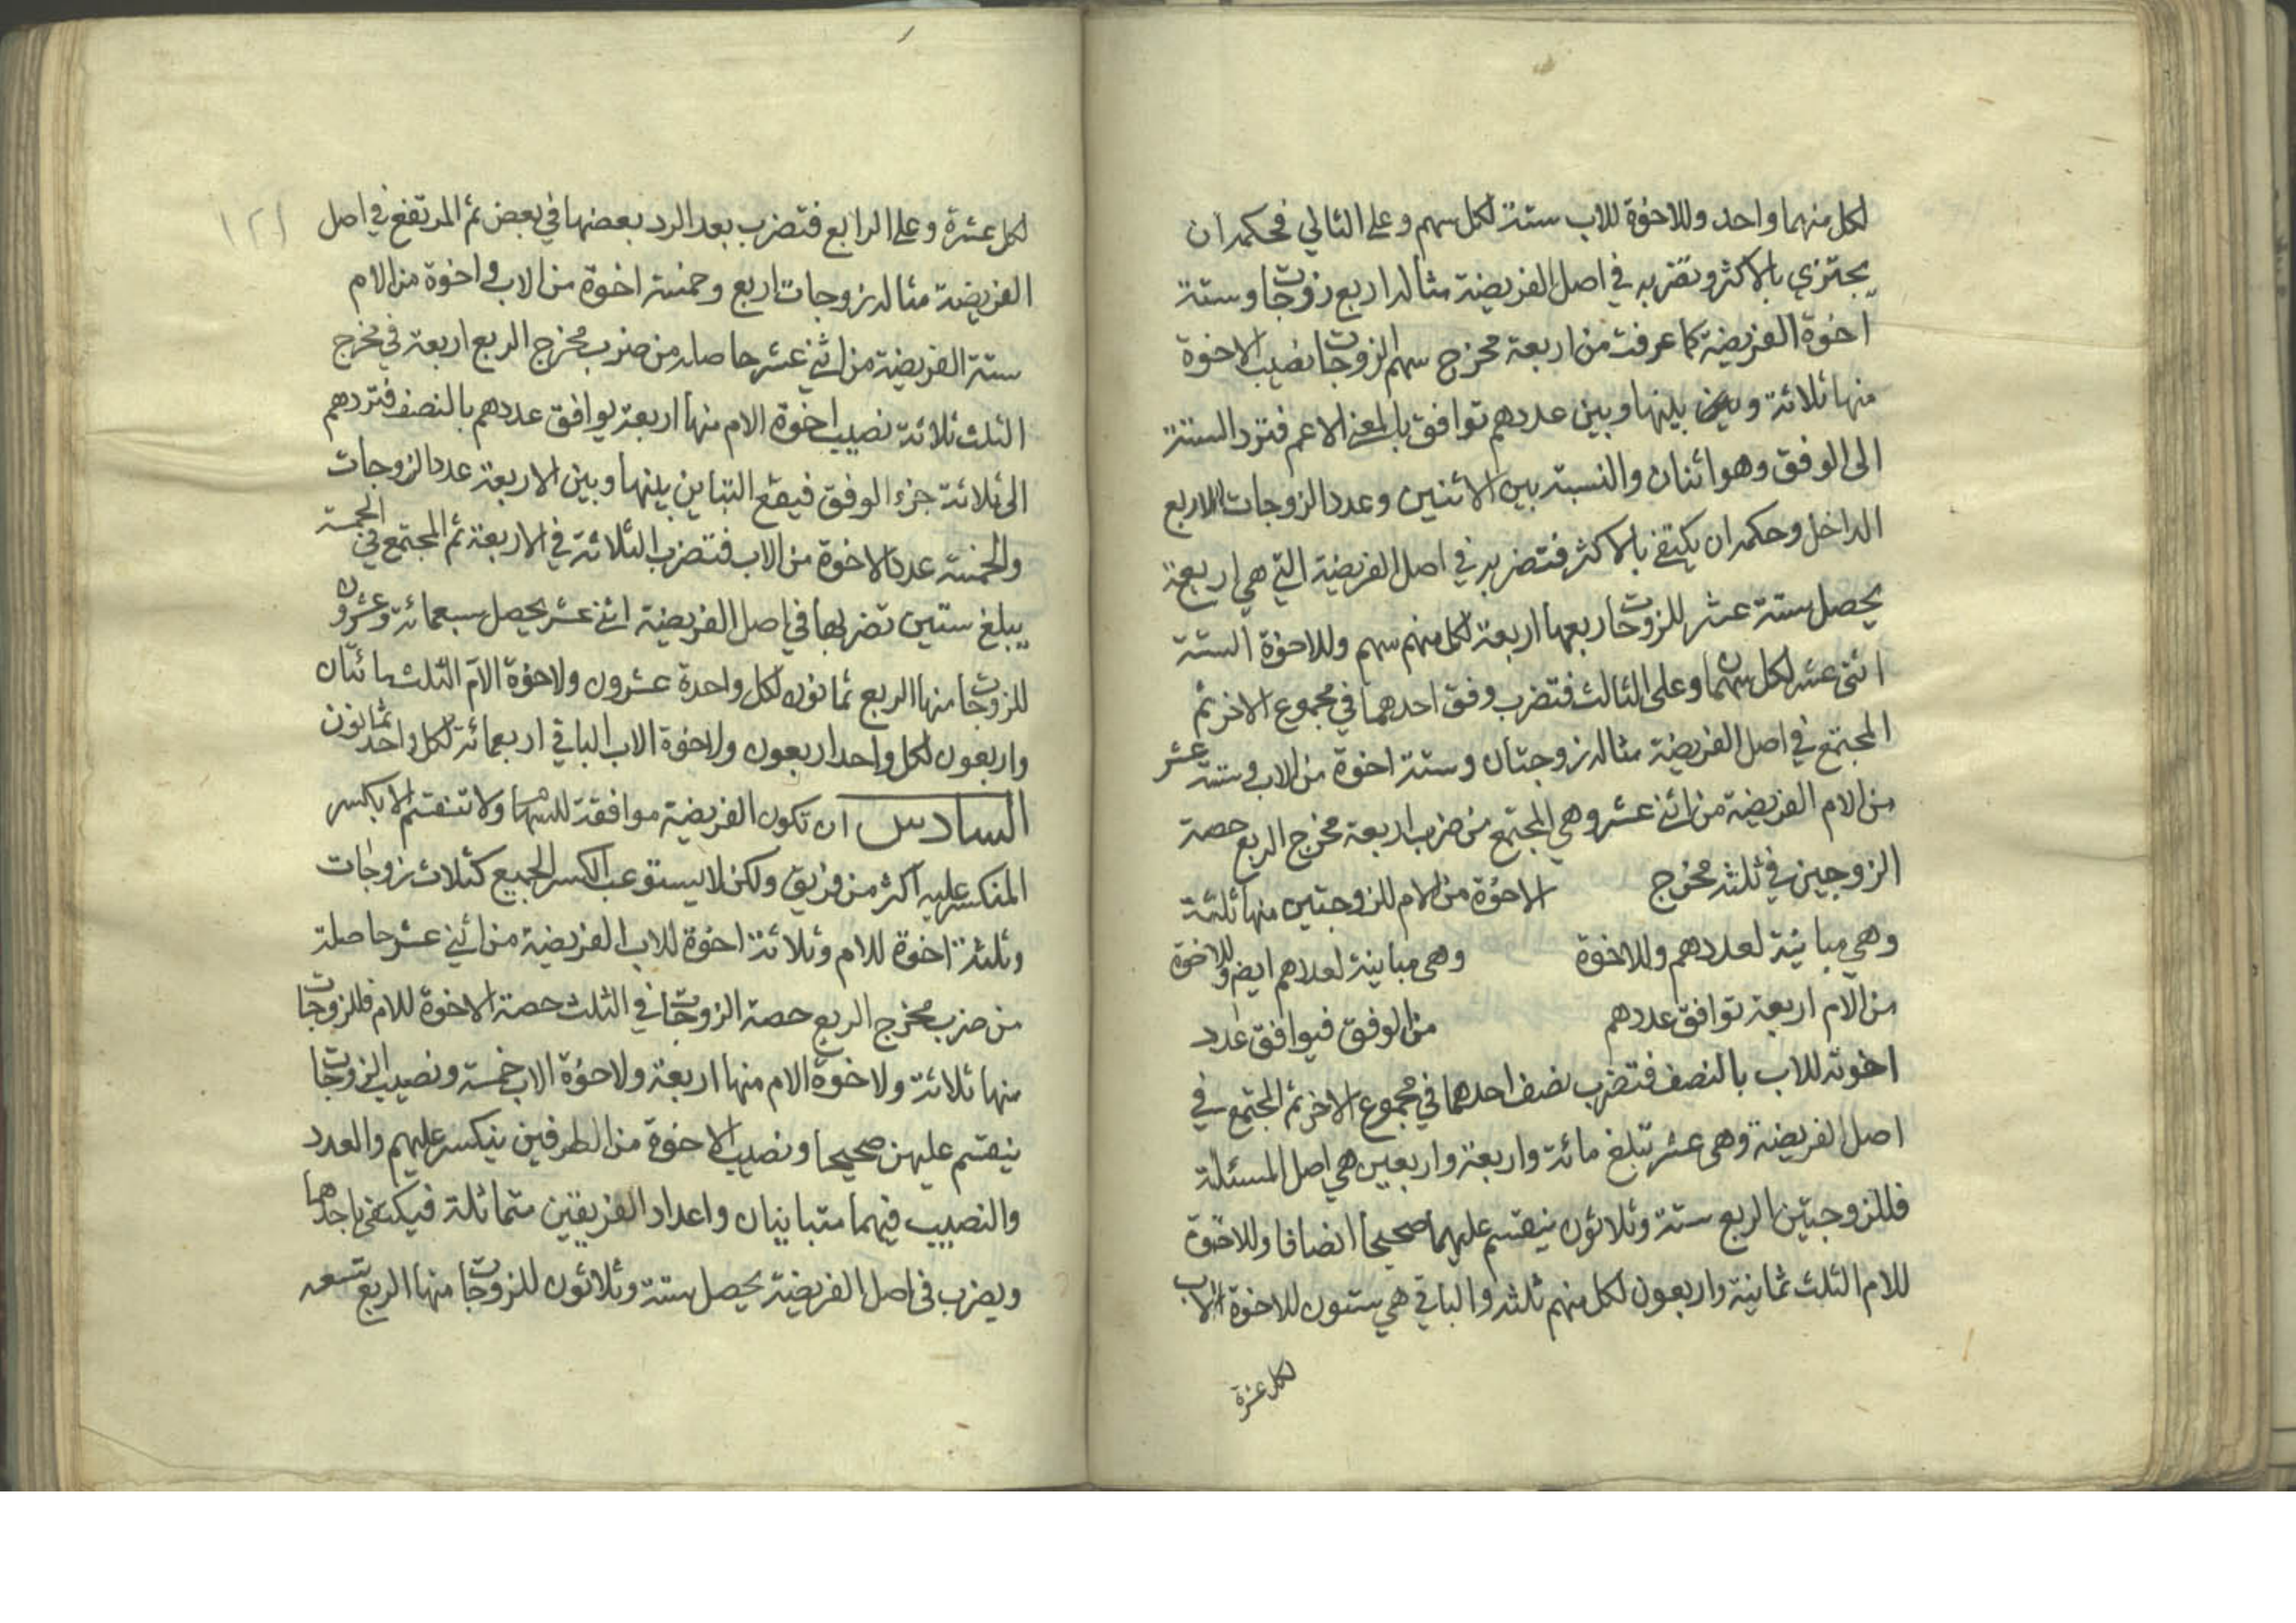 لكل منهما واحد وللاخوة للاب ستة لكل سهم وعلى الثاني فحكمه ان
يجتزي بالاكثر وتضربه في اصل الفريضة مثاله اربع زوجات وستة
اخوة الفريضة كما عرفت من اربعة مخرج سهم الزوجات نصيب الاخوة
منها ثلاثة وبين بينها وبين عددهم توافق بالمعنى الاعم فترد الستة
الى الوفق وهو اثنان والنسبة بين الاثنين وعدد الزوجات الاربع
التداخل وحكمه ان يكتفى بالاكثر فتضربه في اصل الفريضة التي هي اربعة
يحصل ستة عشر للزوجات اربعها اربعة لكل منهم سهم وللاخوة الستة
اثنى عشر لكل سهمان وعلى الثالث فتضرب وفق احدهما في مجموع الاخر ثم
المجتمع في اصل الفريضة مثاله زوجتان وستة اخوة من الاب وستة عشر
من الام الفريضة من اثنى عشر وهي المجتمع من ضرب اربعة مخرج الربع حصة
الزوجين في ثلثه مخرج الاخوة من الام للزوجتين منها ثلثة
وهي مباينة لعددهم وللاخوة وهي مباينة لعددهم ايض وللاخوة
من الام اربعة توافق عددهم من الوفق فيوافق عدد
اخوته للاب بالنصف فتضرب نصف احدهما في مجموع الاخر ثم المجتمع في
اصل الفريضة وهي عشر تبلغ مائة واربعة واربعين هي اصل المسئلة
فللزوجتين الربع ستة وثلاثون ينقسم عليهما صحيحا انصافا وللاخوة
للام الثلث ثمانية واربعون لكل منهم ثلثه والباقي هي ستون للاخوة الاب
لكل عشرة
١٢١
لكل عشرة وعلى الرابع فتضرب بعد الرد بعضها في بعض ثم المرتفع في اصل
الفريضة مثاله زوجات اربع وخمسة اخوة من الاب واخوة من الام
ستة الفريضة من اثنى عشر حاصله من ضرب مخرج الربع اربعة في مخرج
الثلث ثلاثة نصيب اخوة الام منها اربعة يوافق عددهم بالنصف فتردهم
الى ثلاثة جزء الوفق فيقع التباين بينها وبين الاربعة عدد الزوجات
والخمسة عدد الاخوة من الاب فتضرب الثلاثة في الاربعة ثم المجتمع في الخمسة
يبلغ ستين تضربها في اصل الفريضة اثنى عشر يحصل سبعمائة وعشرون
للزوجات منها الربع ثمانون لكل واحدة عشرون ولاخوة الام الثلث مائتان
واربعون لكل واحد اربعون ولاخوة الاب الباقي اربعمائة لكل واحد ثمانون
السادس ان تكون الفريضة موافقة للسهام ولا تنقسم الا بكسر
المنكسر عليه اكثر من فريق ولكن لا يستوعب الكسر الجميع كثلاث زوجات
وثلثة اخوة للام وثلاثة اخوة للاب الفريضة من اثنى عشر حاصلة
من ضرب مخرج الربع حصة الزوجات في الثلث حصة الاخوة للام فللزوجات
منها ثلاثة ولاخوة الام منها اربعة ولاخوة الاب خمسة ونصيب الزوجات
ينقسم عليهن صحيحا ونصيب الاخوة من الطرفين ينكسر عليهم والعدد
والنصيب فيهما متباينان واعداد الفريقين متماثلة فيكتفى باحدهما
ويضرب في اصل الفريضة يحصل ستة وثلاثون للزوجات منها الربع تسعه